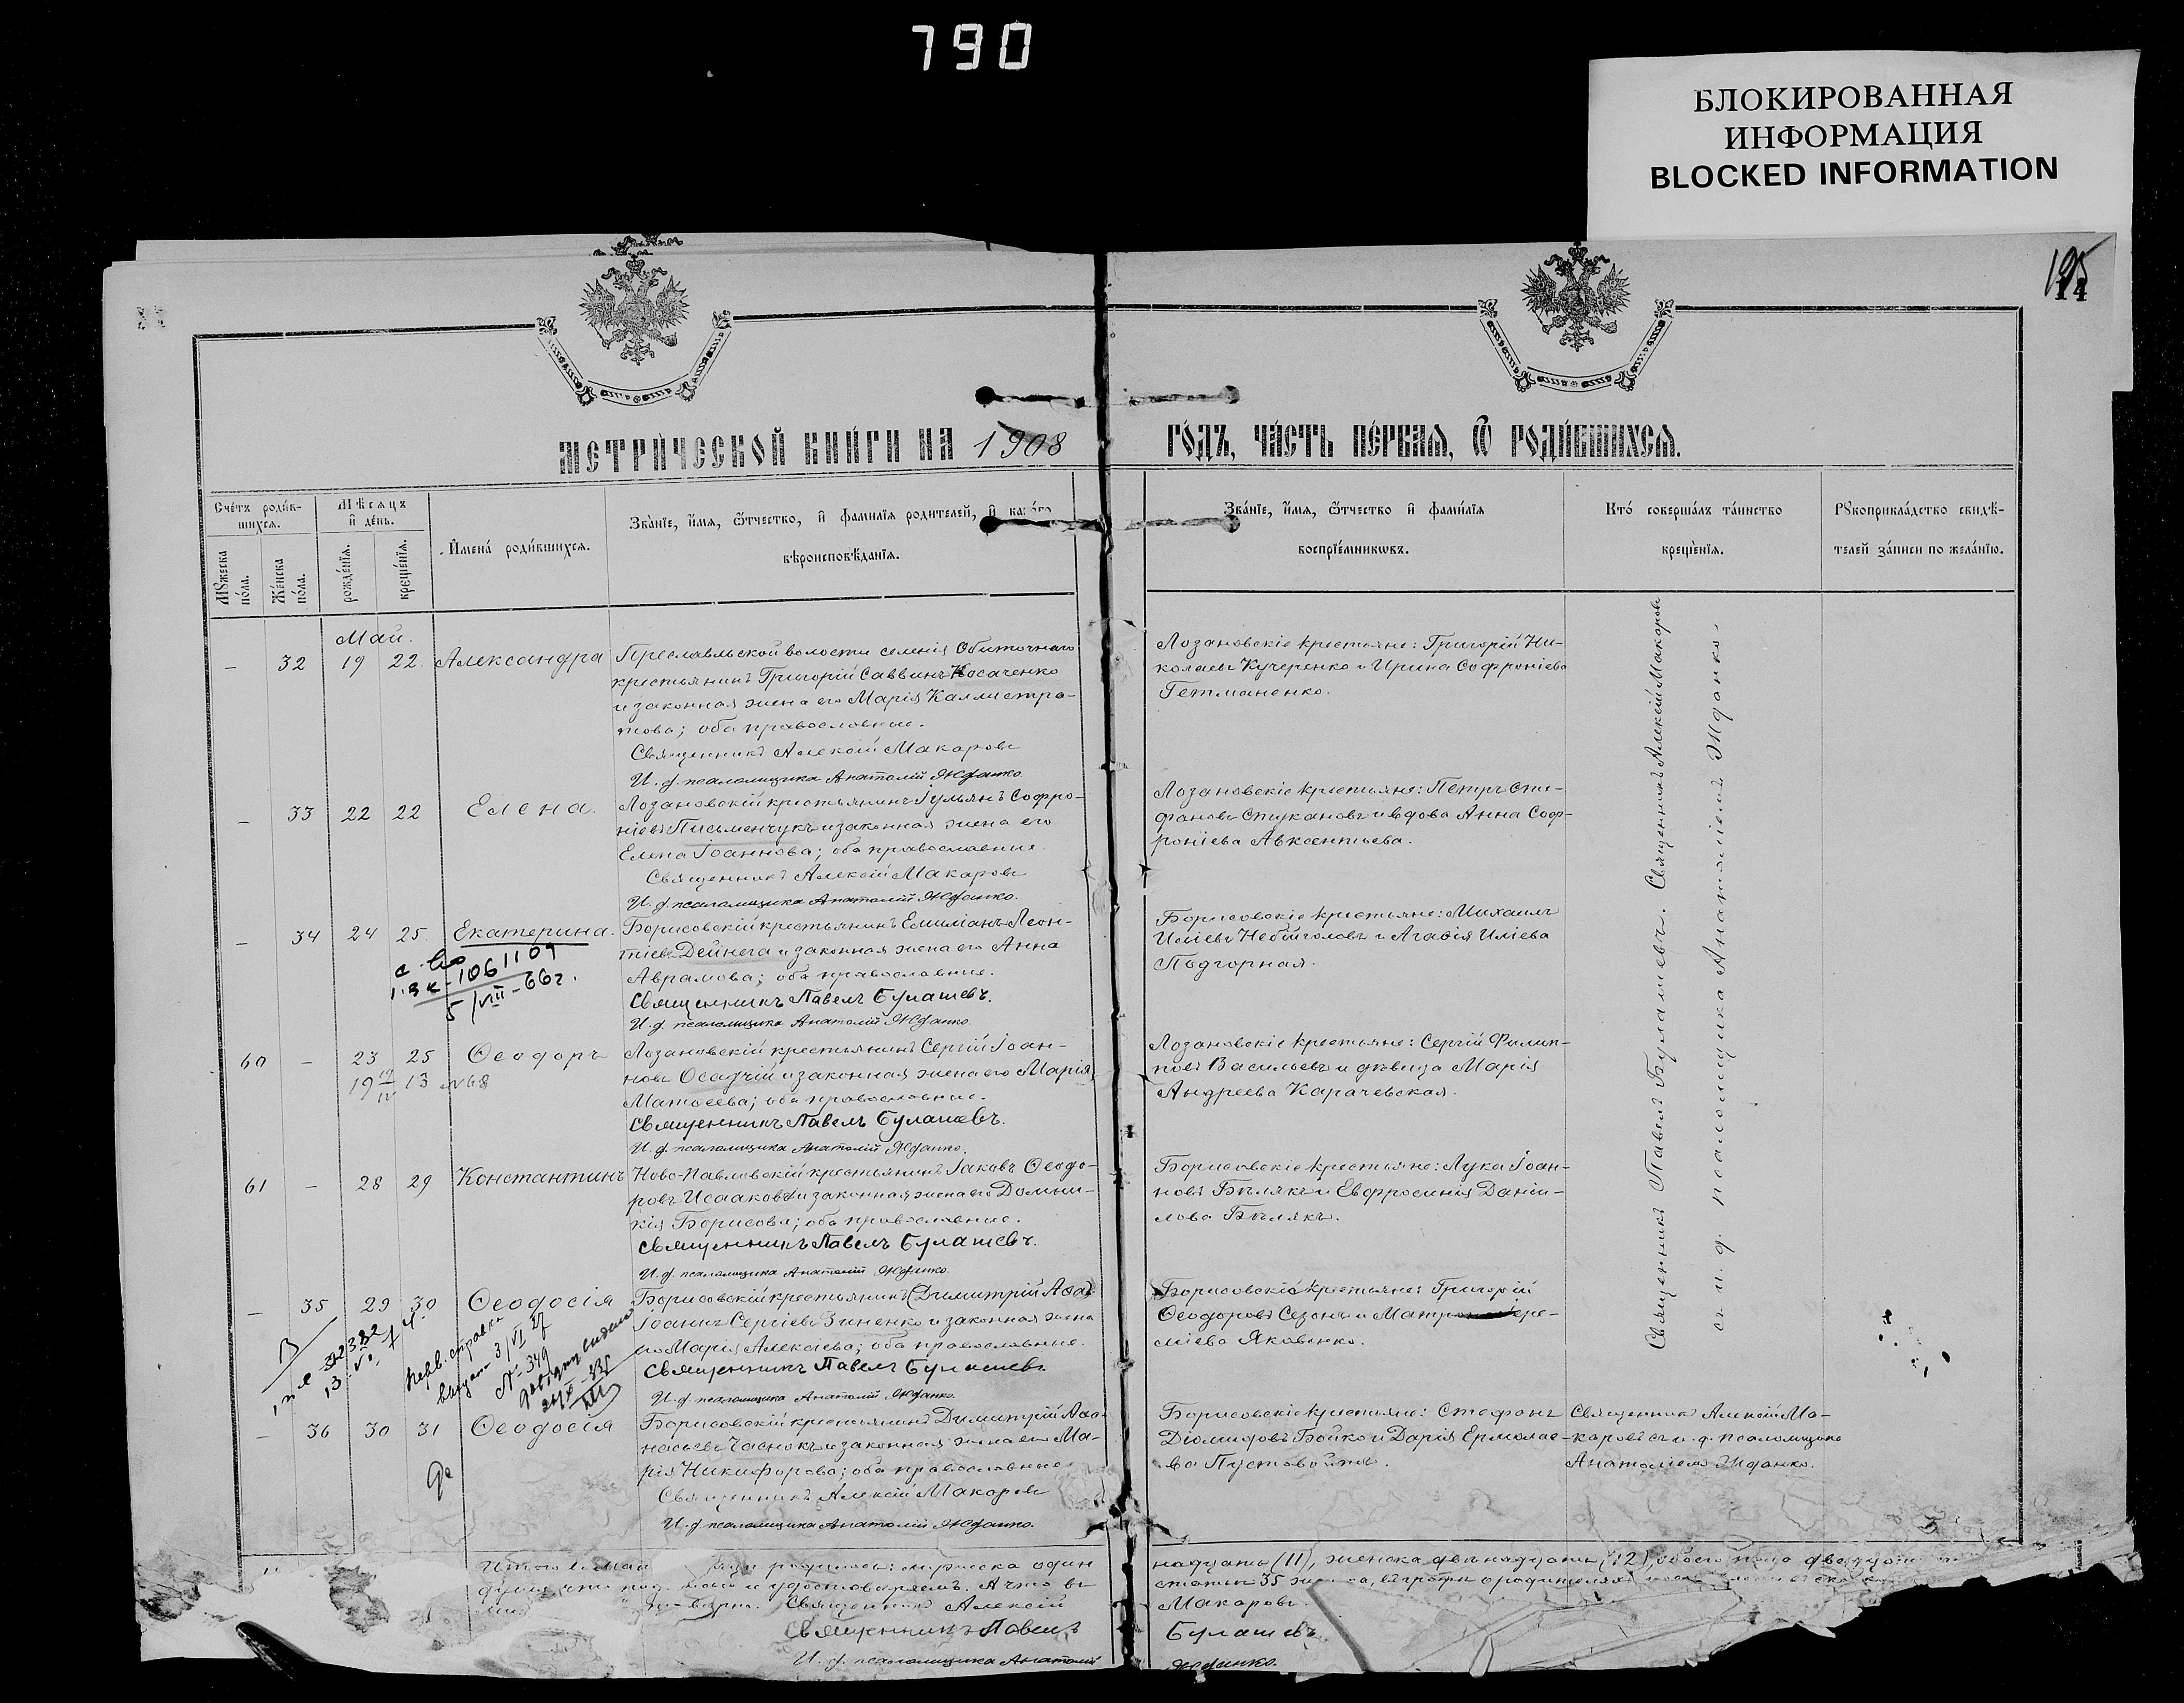 790
БЛОКИРОВАННАЯ
ИНФОРМАЦИЯ
BLOCKED INFORMATION
195
14
МЕТРИ́ЧЕСКОЙ КНИ́ГИ НА 1908 ГО́ДЪ, ЧА́СТЬ ПЕ́РВАѦ, Ѽ РОДИ́ВШИХСѦ.
Сче́тъ роди́в-
шихсѧ.
Мꙋжеска по́ла.
Же́нска по́ла.
Мѣсѧцъ
и҆ де́нь.
рожде́нїѧ.
креще́нїѧ.
И҆мена̀ роди́вшихсѧ.
Зва́нїе, и҆́мѧ, ѻ҆́тчество, и҆ фами́лїѧ роди́телей, и҆
вѣроисповѣ́данїѧ.
Зва́нїе, и҆́мѧ, ѻ҆́тчество и҆ фами́лїѧ
воспрїе́мникѡвъ.
Кто́ соверша́лъ та́инство
креще́нїѧ.
Рꙋкоприкла́дство свидѣ́-
телей за́писи по жела́нїю.
Май.
– 32 19 22. Александра
Преславльской волости селенія Обиточнаго
крестьянинъ Григорій Саввинъ Косаченко
и законная жена его Марія Каллистра-
това; оба православные.
Священникъ Алексій Макаровъ
И. д. псаломщика Анатолій Жданко.
Лозановскіе крестьяне: Григорій Ни-
колаевъ Кучеренко и Ирина Софроніева
Гетманенко.
– 33 22 22 Елена.
Лозановскій крестьянинъ Іульянъ Софро-
ніевъ Письменчукъ и законная жена его
Елена Іоаннова; оба православные.
Священникъ Алексій Макаровъ
И. д. псаломщика Анатолій Жданко.
Лозановскіе крестьяне: Петръ Сте-
фановъ и вдова Анна Соф-
роніева Авксентьева.
– 34 24 25. Екатерина.
1061109
5/VIII-66г.
Борисовскій крестьянинъ Емиліанъ Леон-
тіевъ Дейнега и законная жена его Анна
Аврамова; оба православные.
Священникъ Павелъ Булашевъ.
И. д. псаломщика Анатолій Жданко.
Борисовскіе крестьяне: Михаилъ
Иліевъ и Агафія Иліева
Подгорная.
60 – 23 25 Ѳеодоръ
19 19/IV 13 №68
Лозановскій крестьянинъ Сергій Іоан-
новъ и законная жена его Марія
Матѳеева; оба православные.
Священникъ Павелъ Булашевъ.
И. д. псаломщика Анатолій Жданко.
Лозановскіе крестьяне: Сергій Филип-
повъ Васильевъ и дѣвица Марія
Андреева Карачевская.
61 – 28 29 Константинъ
Ново-Павловскій крестьянинъ Іаковъ Ѳеодо-
ровъ Исааковъ и законная жена его Домни-
кія Борисова; оба православные.
Священникъ Павелъ Булашевъ.
И. д. псаломщика Анатолій Жданко.
Борисовскіе крестьяне: Лука Іоан-
новъ Бѣлякъ и Евфросинія Даніи-
лова Бѣлякъ.
– 35 29 30 Ѳеодосія
№ 349
Борисовскій крестьянинъ
Іоаннъ Сергіевъ Зиненко и законная жена
его Марія Алексіева; оба православные.
Священникъ Павелъ Булашевъ
И. д. псаломщика Анатолій Жданко.
Борисовскіе крестьяне: Григорій
Ѳеодоровъ Сезонъ и
Яковенко.
Священникъ Павелъ Булашевъ. Священникъ Алексій Макаровъ
съ и. д. псаломщика Анатоліемъ Жданко.
– 36 30 31 Ѳеодосія
Борисовскій крестьянинъ Димитрій Аѳа-
насьевъ Часнокъ и законная жена его Ма-
рія Никифорова; оба православные
Священникъ Алексій Макаровъ
И. д. псаломщика Анатолій Жданко.
Борисовскіе крестьяне: Стефанъ
Діомидовъ Бойко и Дарія Ермолае-
ва
Священникъ Алексій Ма-
каровъ съ и. д. псаломщика
Анатоліемъ Жданко.
Итого въ Май родилось: мужеска один
надцать (11), женска двѣнадцать (12), обоего пола
и удостовѣряемъ. А что въ
статьи 35
вѣрно. Священникъ Алексій
Макаровъ.
Священникъ Павелъ Булашевъ
И. д. псаломщика Анатолій Жданко.